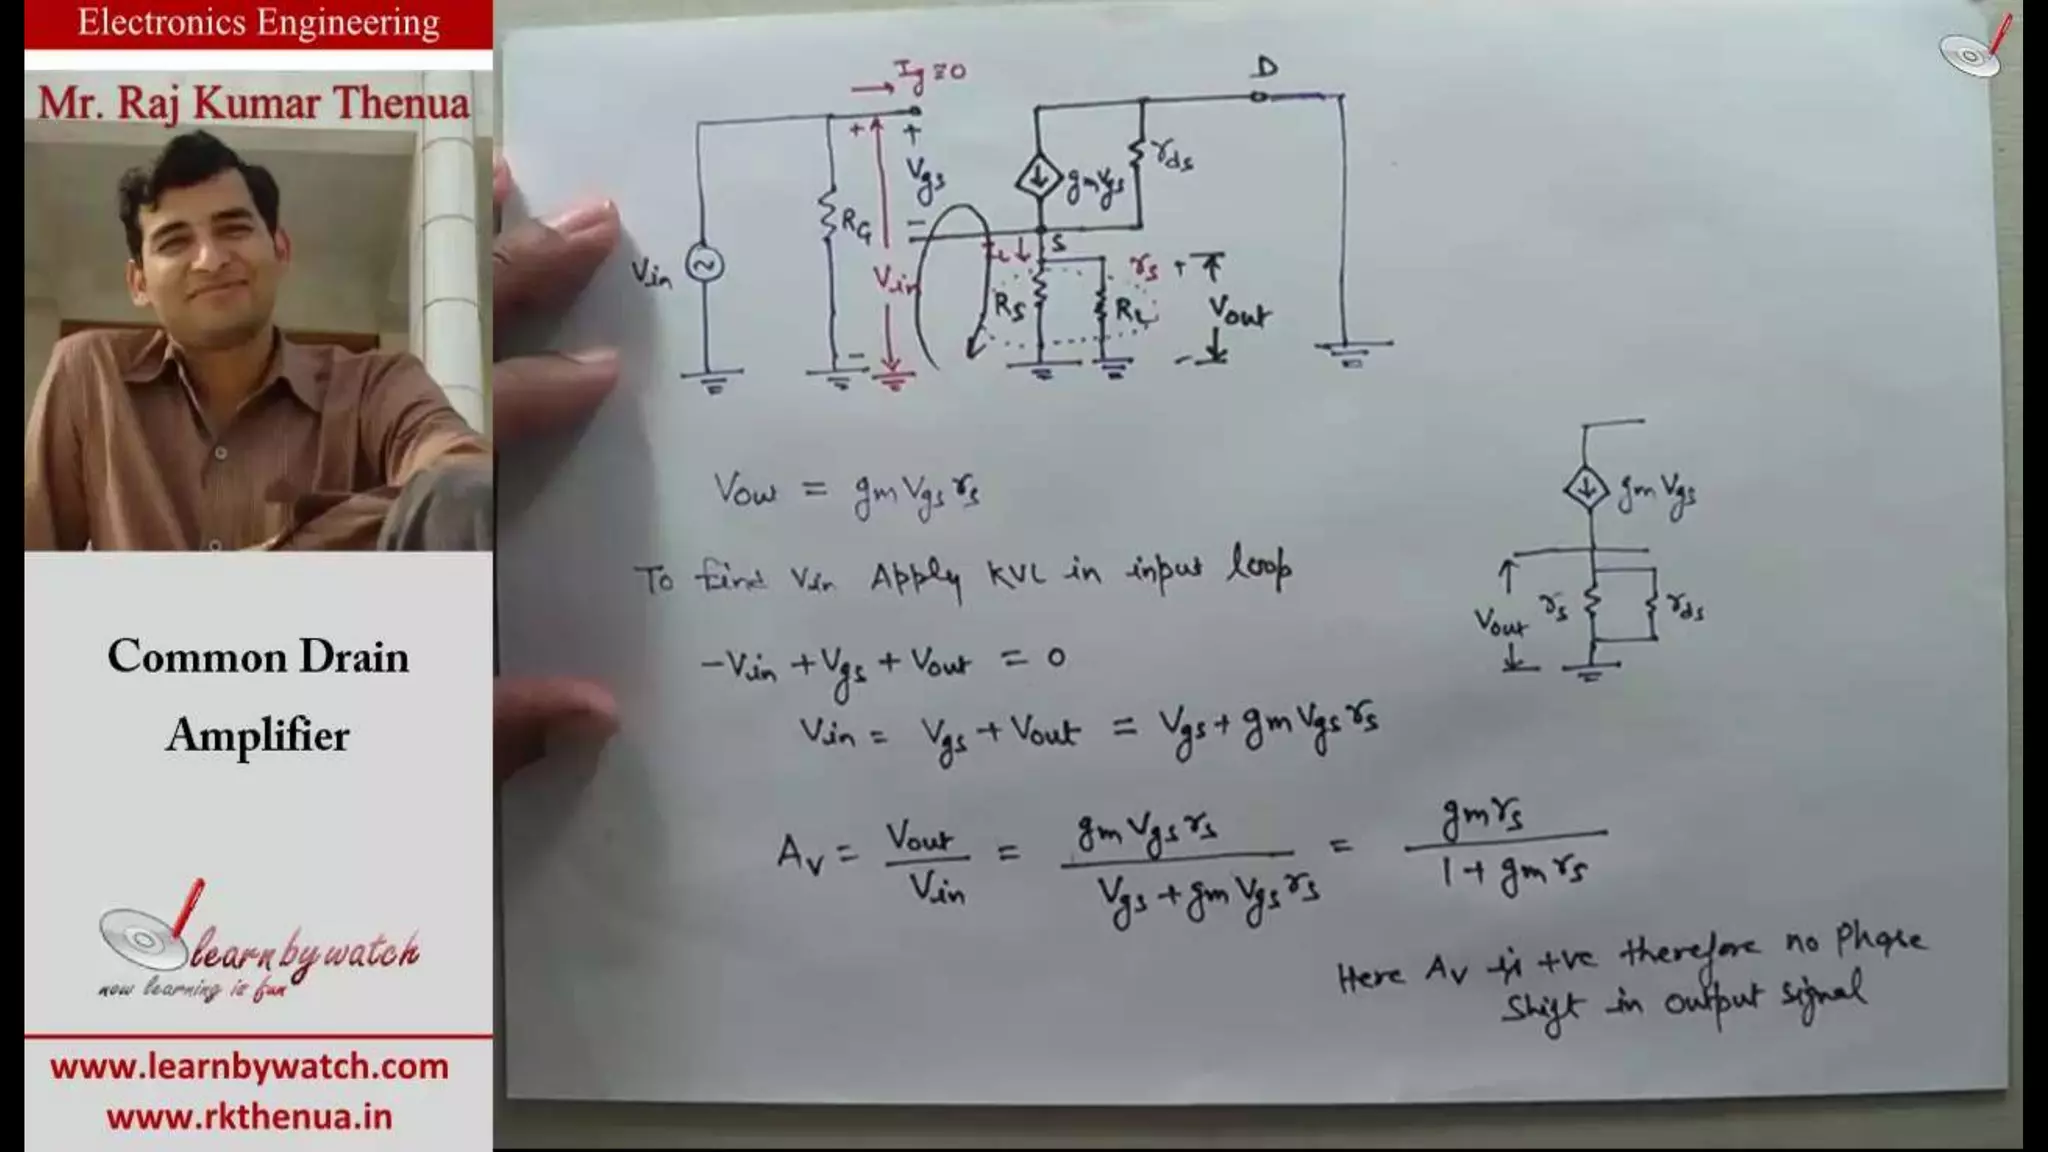 Electronics Engineering
Mr. Raj Kumar Thenua
Common Drain
Amplifier
learnbywatch
now learning is fun
www.learnbywatch.com
www.rkthenua.in
Ig≅0
D
+
+
Vgs
gmVgs
rds
RG
−
Vin
Vin
S
RS
RL
rs
+
Vout
−
−
gmVgs
Vout
rs
rds
Vout = gm Vgs rs
To find Vin Apply KVL in input loop
−Vin + Vgs + Vout = 0
Vin = Vgs + Vout = Vgs + gm Vgs rs
Av = Vout / Vin = gm Vgs rs / Vgs + gm Vgs rs = gm rs / 1 + gm rs
Here Av is +ve therefore no Phase
Shift in output signal